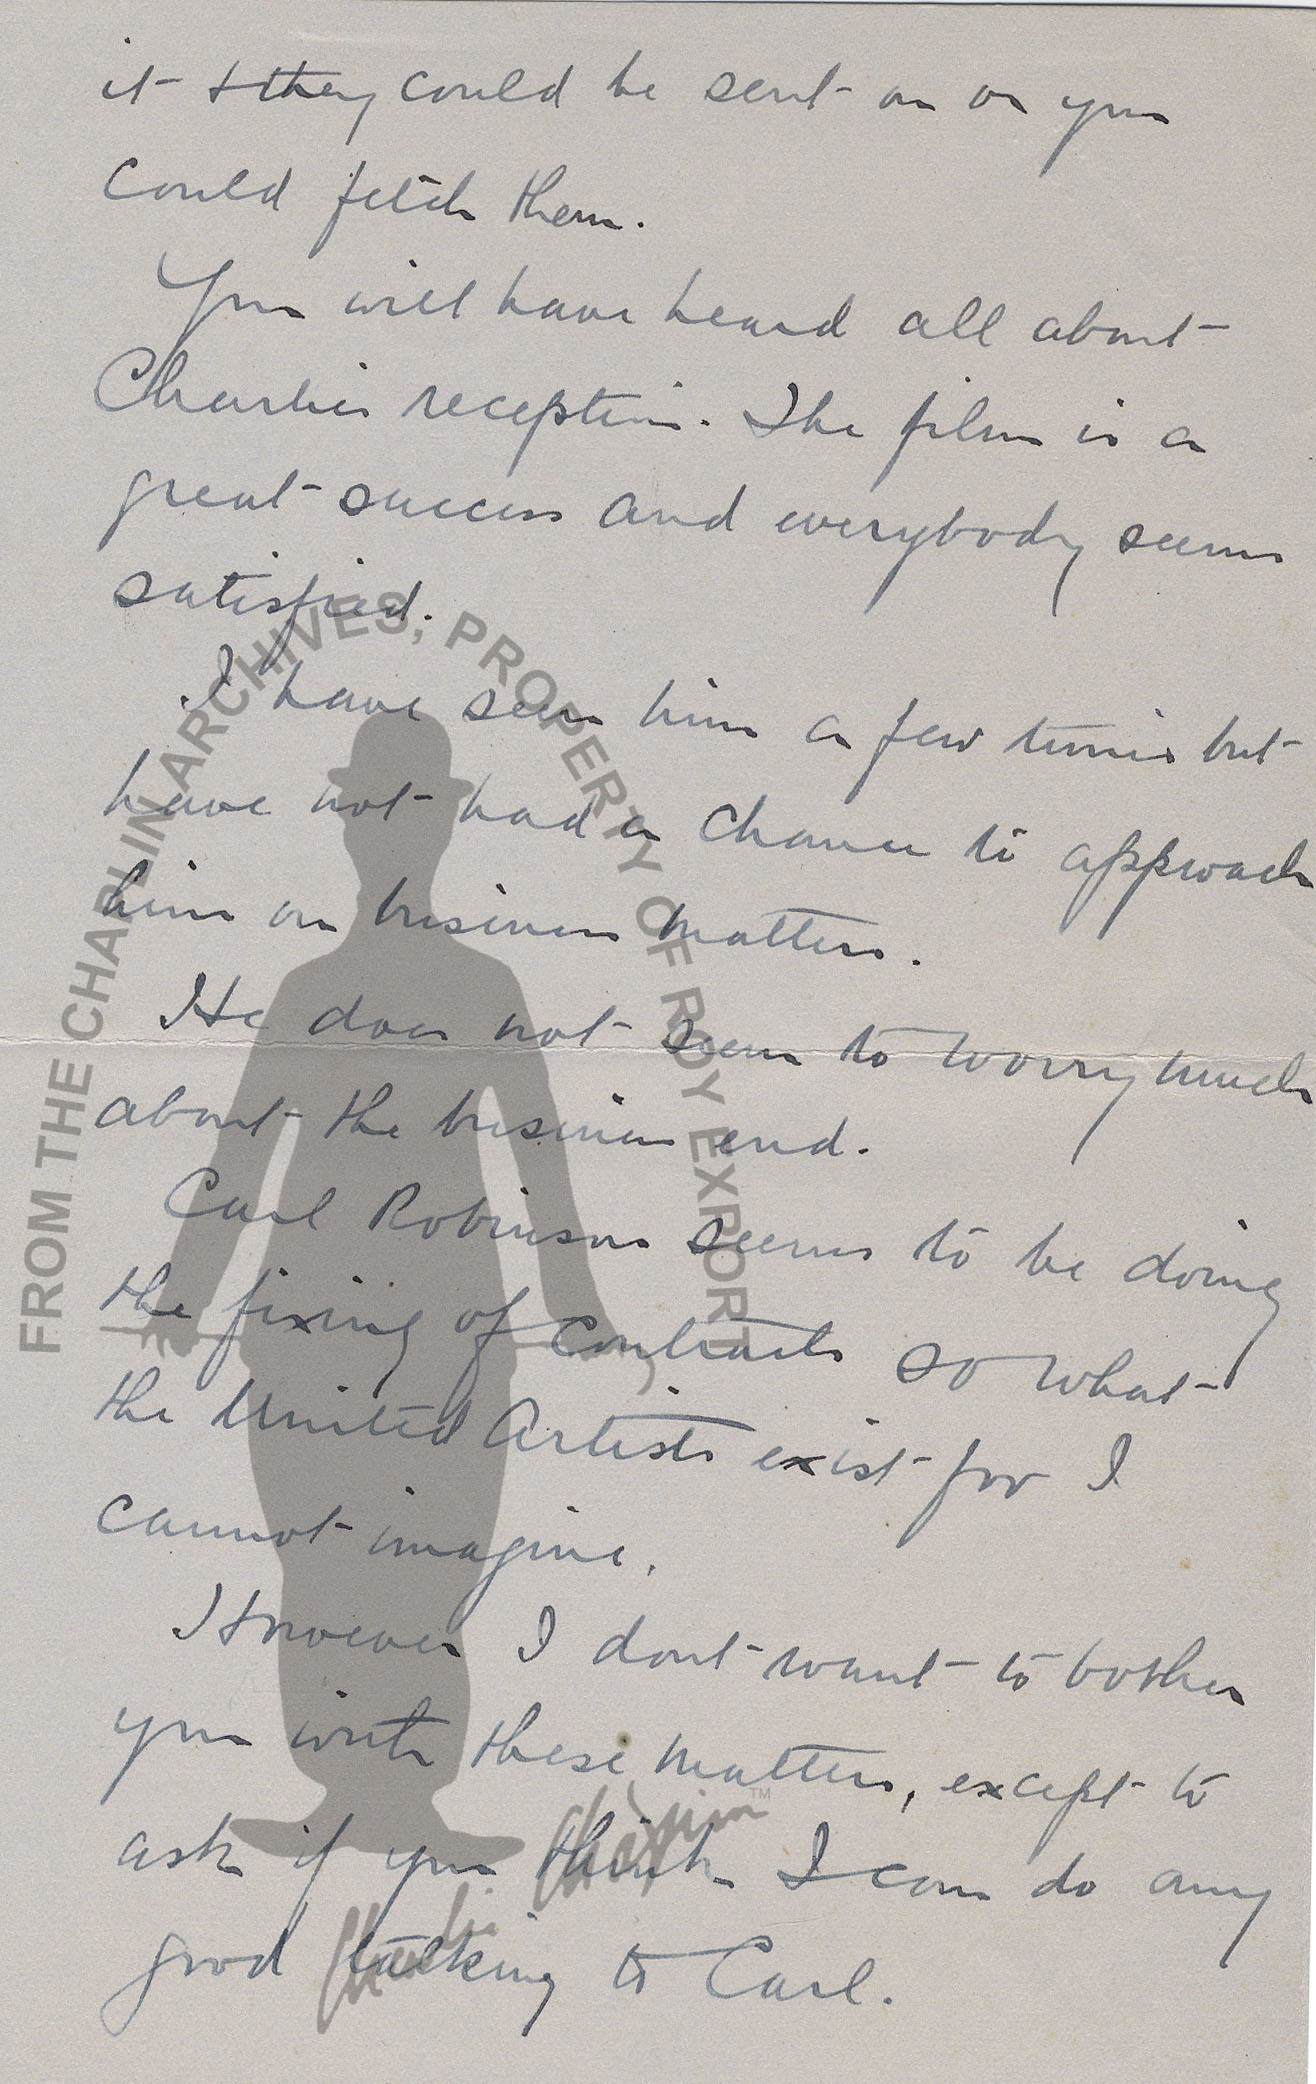 it & they could be sent on or you
could fetch them.
You will have heard all about
Charlies reception. The film is a
great success and everybody seems
satisfied.
I have seen him a few times but
have not had a chance to approach
him on business matters.
He does not seem to worry much
about the business end.
Carl Robinson seems to be doing
the fixing of contracts so what
the United Artists exist for I
cannot imagine.
However I dont want to bother
you with these matters, except to
ask if you think I can do any
good talking to Carl.
FROM THE CHAPLIN ARCHIVES, PROPERTY OF ROY EXPORT
Charlie Chaplin™